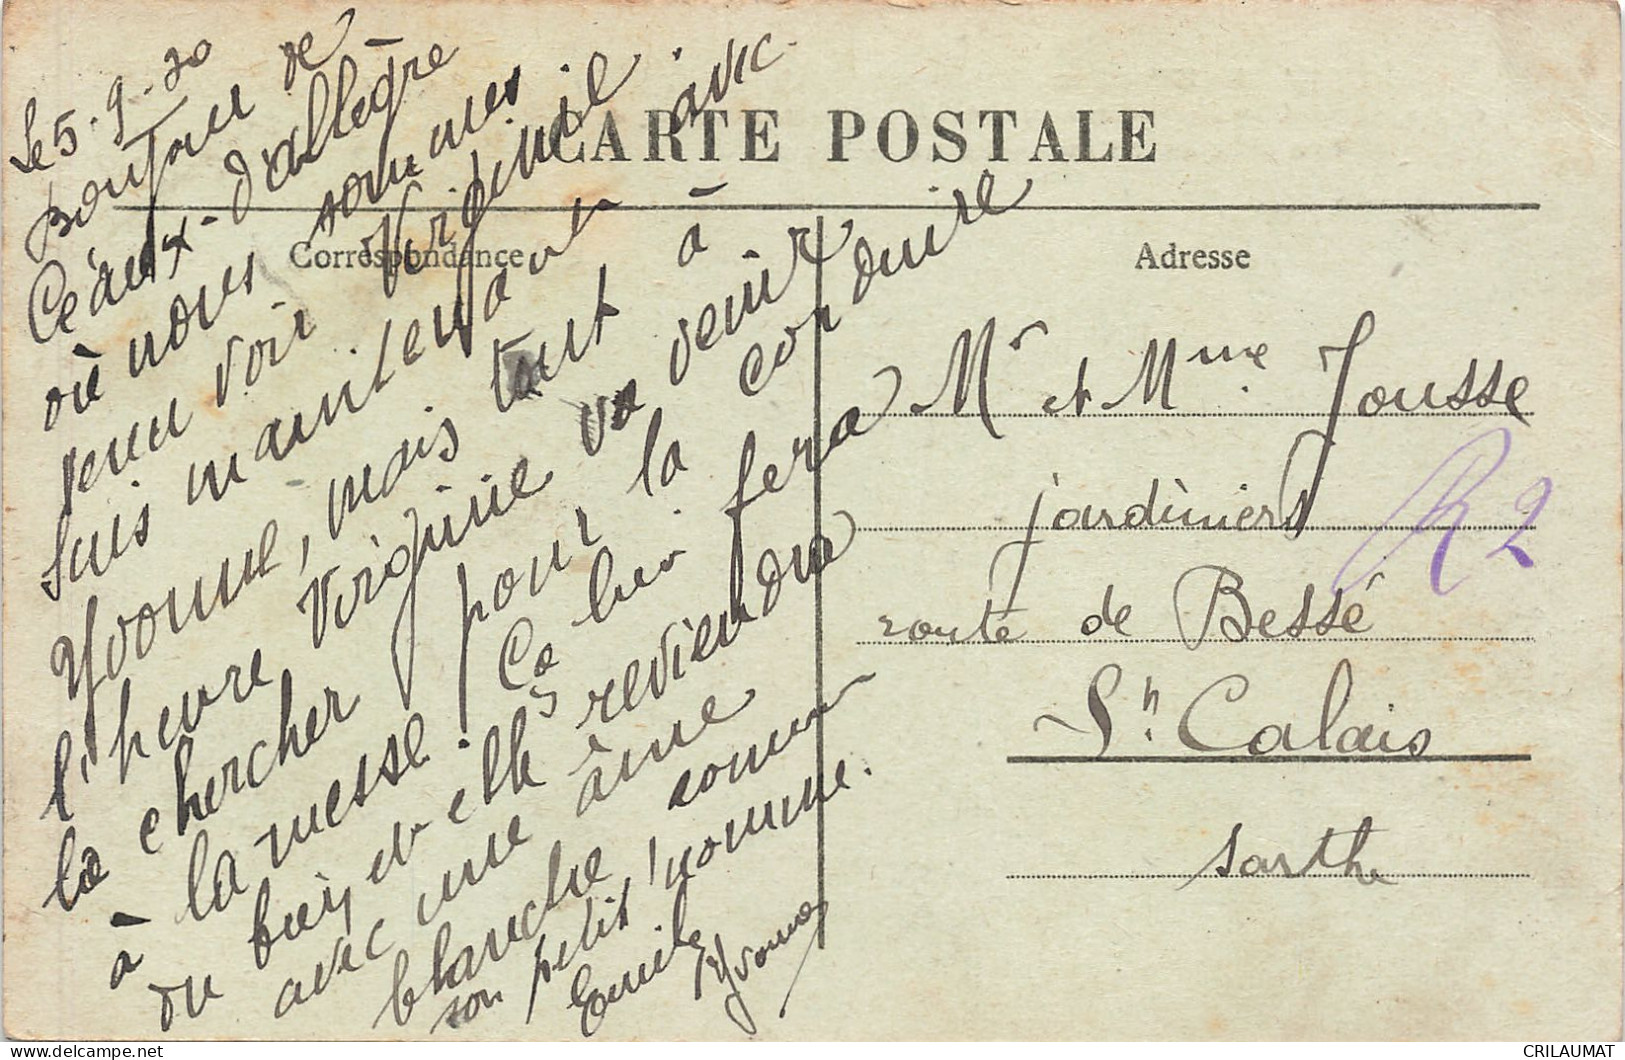 CARTE POSTALE
Correspondance
Adresse
Le 5-9-20
Bonjour de
Céaux-d'allègre
où nous sommes
venu voir Virginie il
suis maintenant avec
Yvonne, mais tout à
l'heure Virginie va venir
la chercher pour la conduire
à la messe. Ça lui fera
du bien et elle reviendra
avec une âme
blanche comme
son petit homme.
Emile Yvonne
Mr et Mme Jousse
jardiniers
route de Bessé
St. Calais
Sarthe
R2
CRILAUMAT